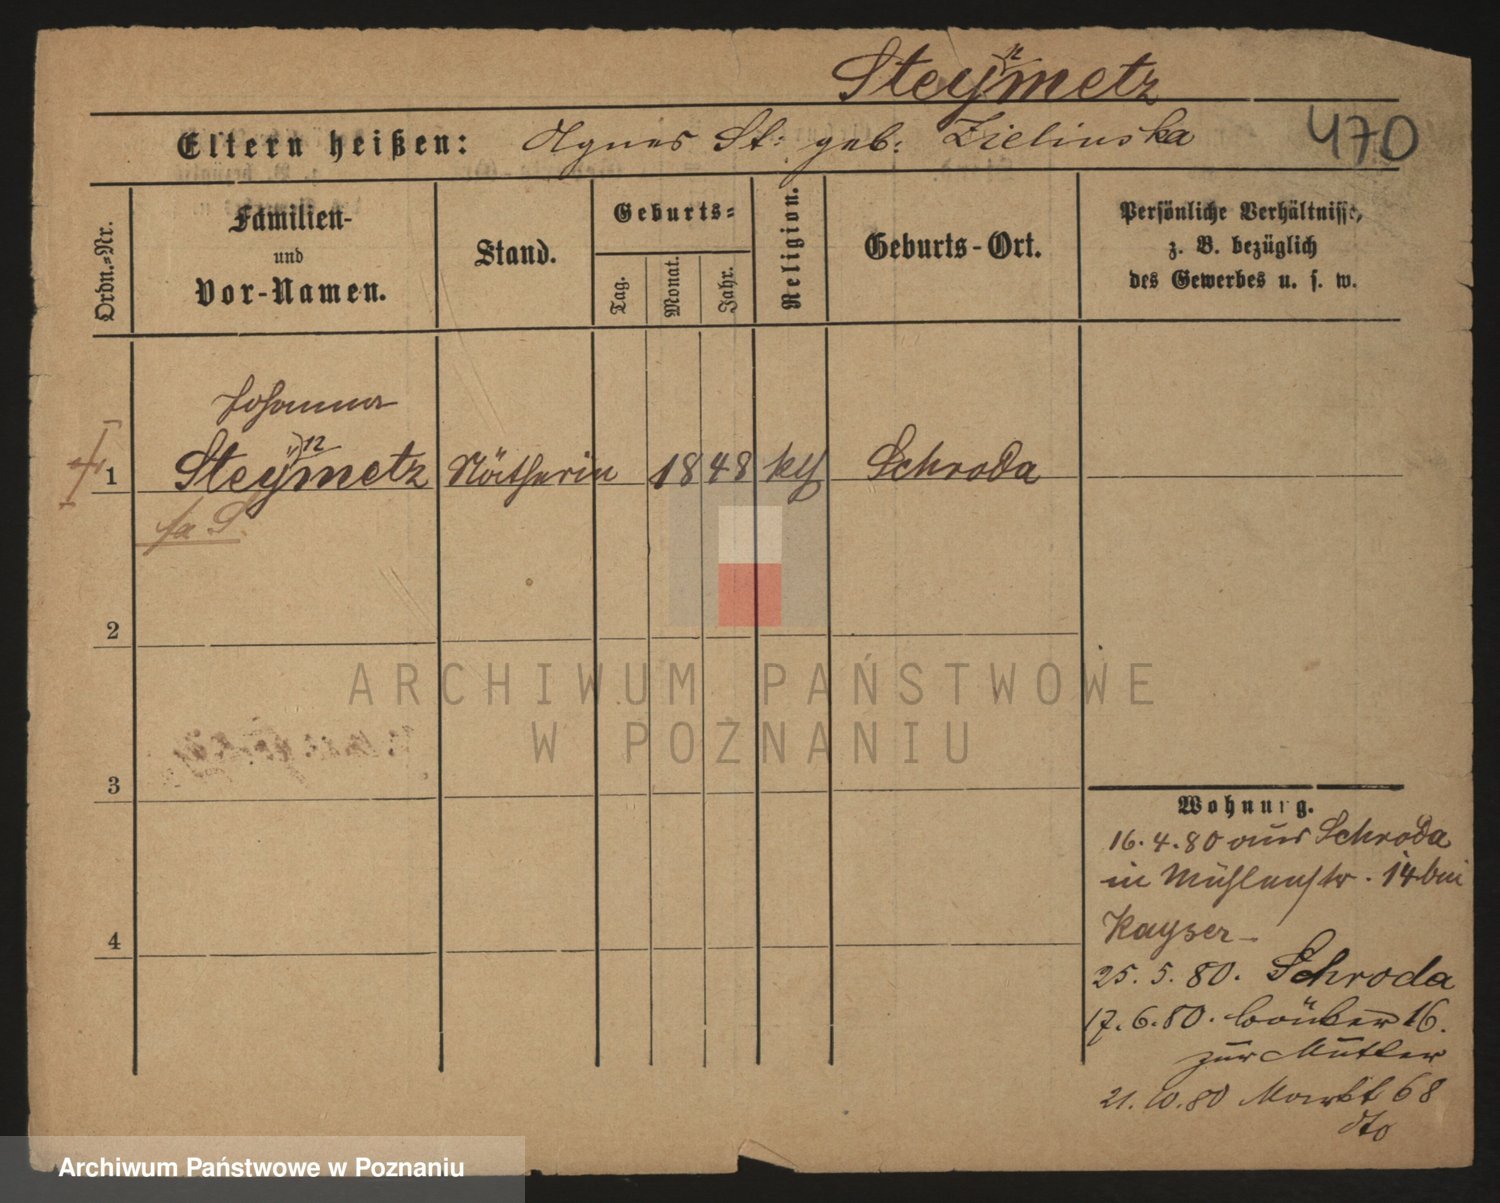 Steymetz
n
Eltern heißen: Agnes St: geb: Zielinska
470
Ordn.=Nr.
Familien-
und
Vor-Namen.
Stand.
Geburts=
Tag.
Monat.
Jahr.
Religion.
Geburts-Ort.
Persönliche Verhältnisse,
z. B. bezüglich
des Gewerbes u. s. w.
Johanna
n
1 Steymetz Nätherin 1848 kth Schroda
2
3
4
ARCHIWUM PAŃSTWOWE
W POZNANIU
Wohnung.
16.4.80 aus Schroda
in Mühlenstr. 14 bei
Kayser
25.5.80. Schroda
17.6.80. 16.
zur Mutter
21.10.80 Markt 68
dto
Archiwum Państwowe w Poznaniu